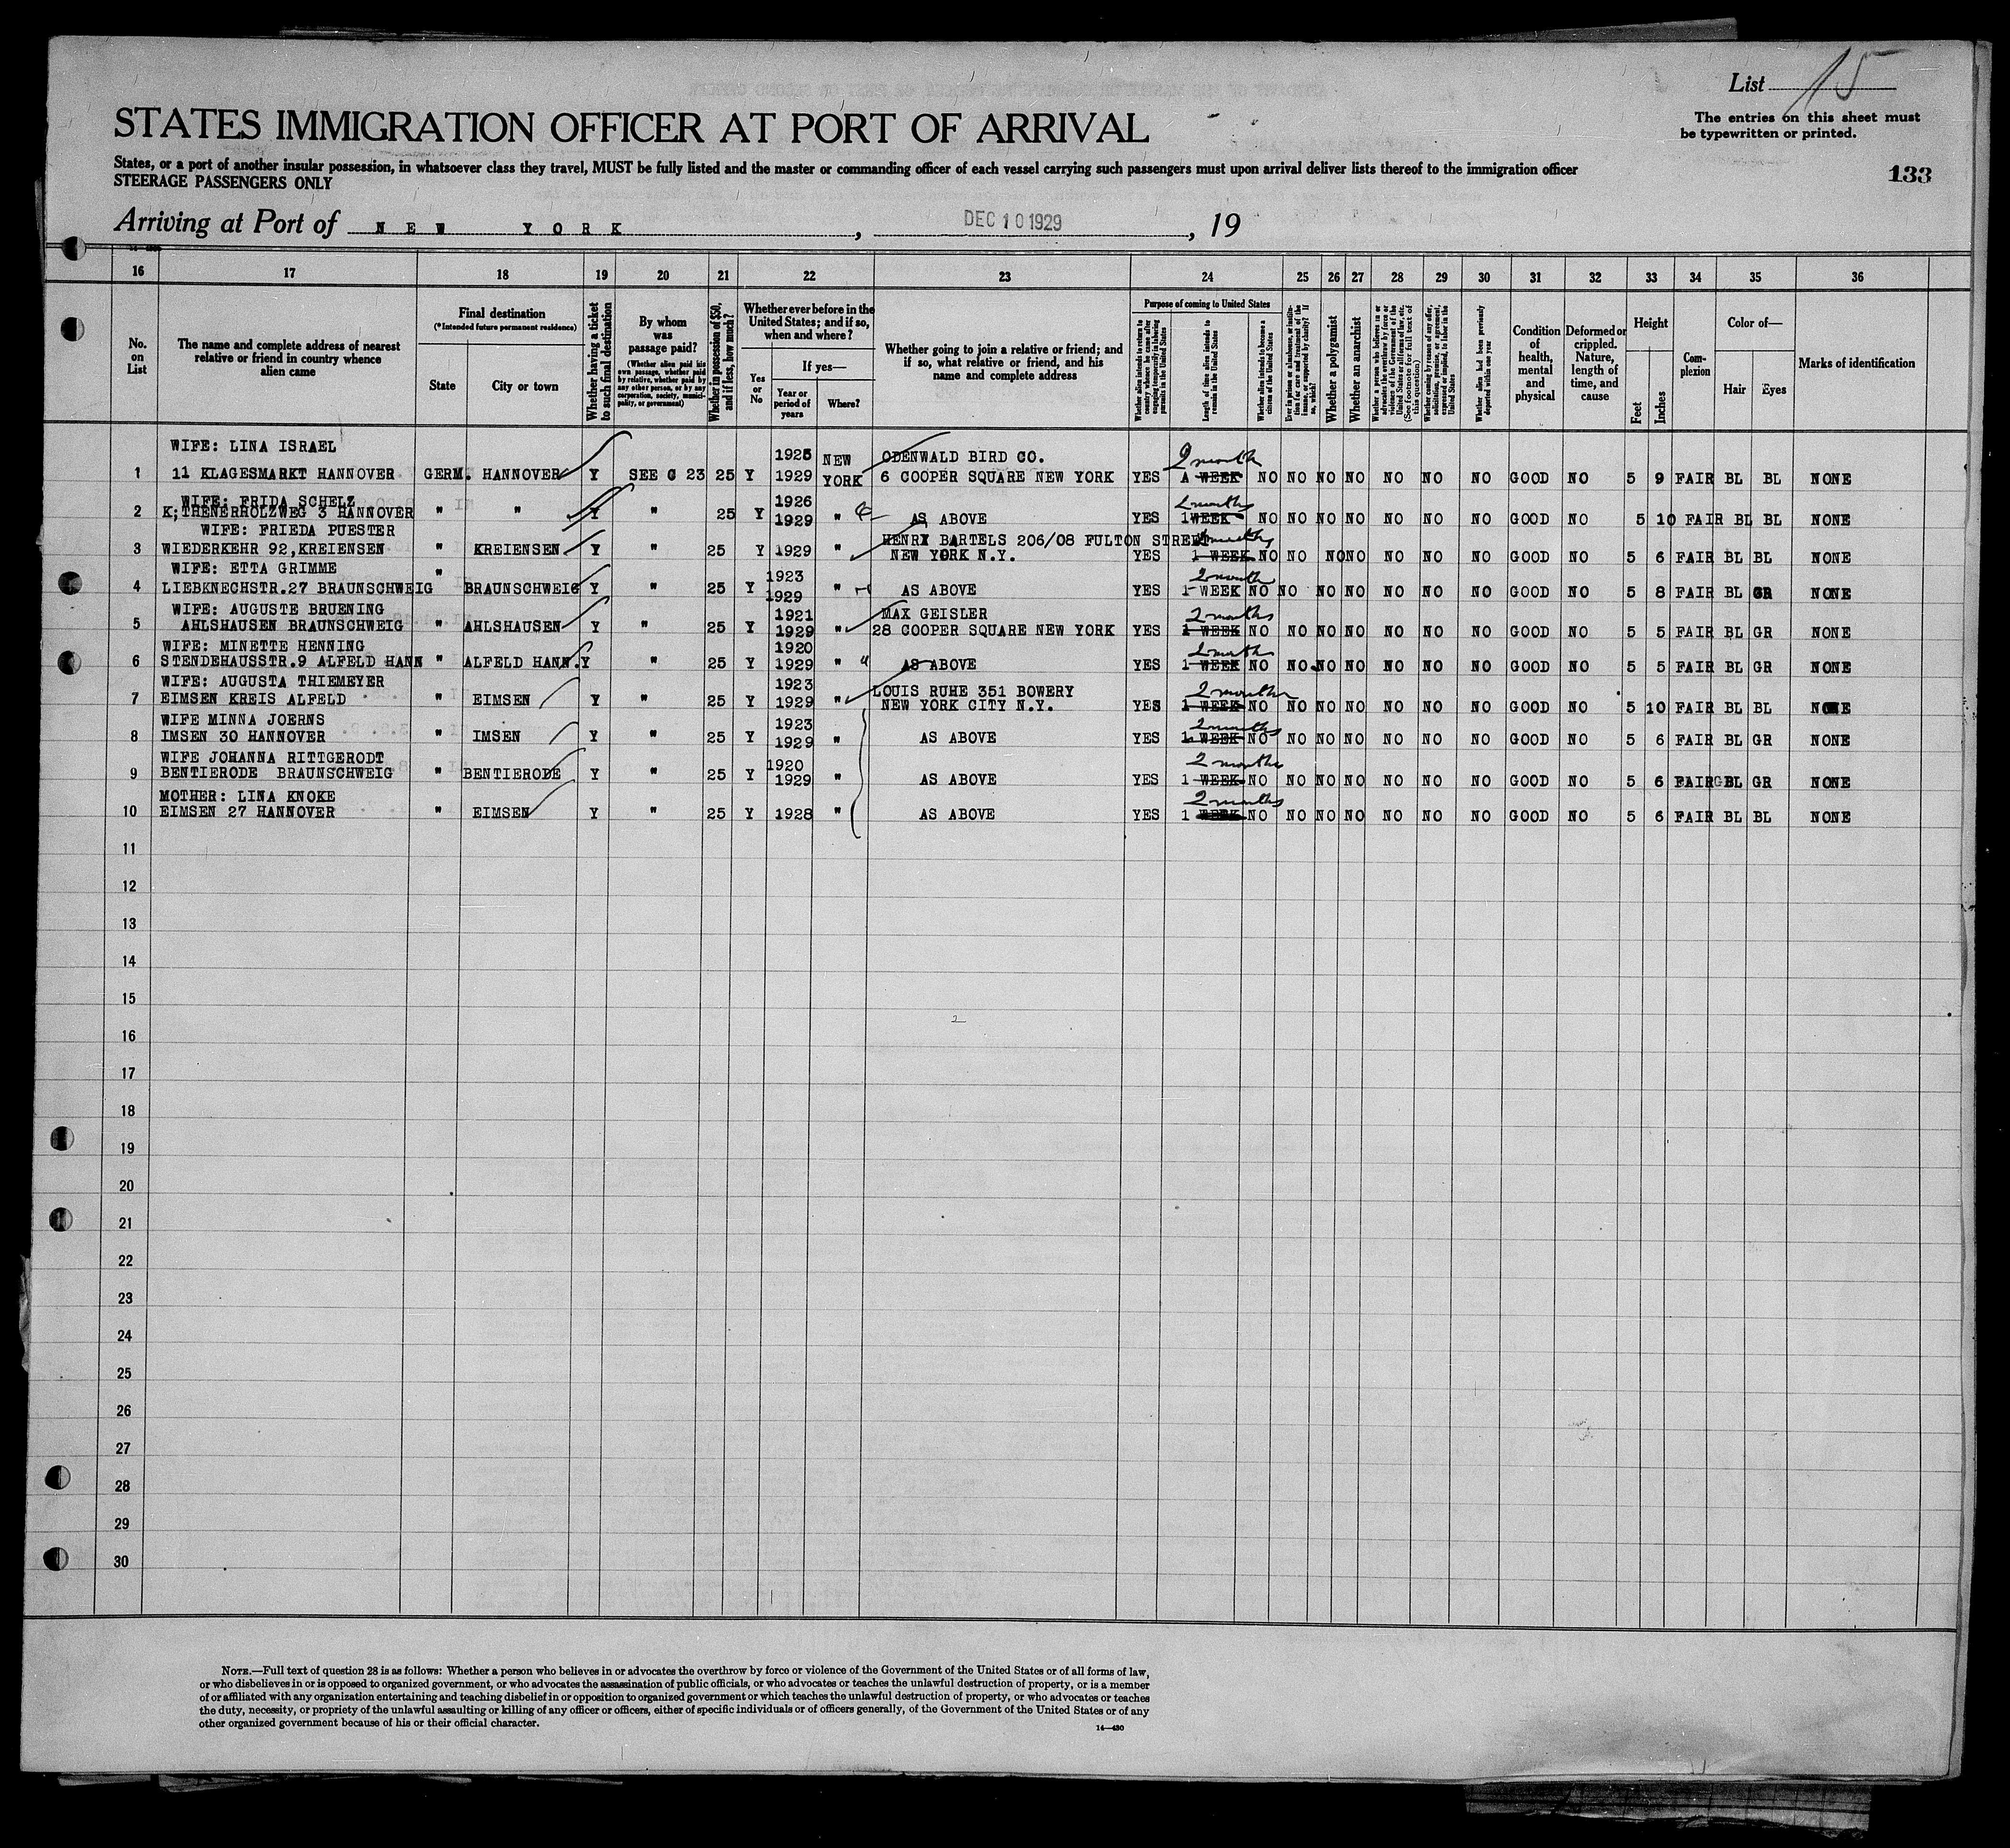 List 15
The entries on this sheet must
be typewritten or printed.
STATES IMMIGRATION OFFICER AT PORT OF ARRIVAL
States, or a port of another insular possession, in whatsoever class they travel, MUST be fully listed and the master or commanding officer of each vessel carrying such passengers must upon arrival deliver lists thereof to the immigration officer
STEERAGE PASSENGERS ONLY
133
Arriving at Port of NEW YORK, DEC 10 1929, 19
16 17 18 19 20 21 22 23 24 25 26 27 28 29 30 31 32 33 34 35 36
No. on List
The name and complete address of nearest relative or friend in country whence alien came
Final destination
(*Intended future permanent residence)
State
City or town
Whether having a ticket to such final destination
By whom was passage paid?
(Whether alien paid his own passage, whether paid by relative, whether paid by any other person, or by any corporation, society, municipality, or government)
Whether in possession of $50, and if less, how much?
Whether ever before in the United States; and if so, when and where?
Yes or No
If yes—
Year or period of years
Where?
Whether going to join a relative or friend; and if so, what relative or friend, and his name and complete address
Purpose of coming to United States
Whether alien intends to return to country whence he came after engaging temporarily in laboring pursuits in the United States
Length of time alien intends to remain in the United States
Whether alien intends to become a citizen of the United States
Ever in prison or almshouse, or institution for care and treatment of the insane, or supported by charity? If so, which?
Whether a polygamist
Whether an anarchist
Whether a person who believes in or advocates the overthrow by force or violence of the Government of the United States or all forms of law, etc. (See footnote for full text of this question)
Whether coming by reason of any offer, solicitation, promise, or agreement, expressed or implied, to labor in the United States
Whether alien had been previously deported within one year
Condition of health, mental and physical
Deformed or crippled. Nature, length of time, and cause
Height
Feet
Inches
Complexion
Color of—
Hair
Eyes
Marks of identification
WIFE: LINA ISRAEL 1925 NEW ODENWALD BIRD CO. 2 month
1 11 KLAGESMARKT HANNOVER GERM. HANNOVER Y SEE C 23 25 Y 1929 YORK 6 COOPER SQUARE NEW YORK YES A WEEK NO NO NO NO NO NO NO GOOD NO 5 9 FAIR BL BL NONE
WIFE: FRIDA SCHELZ 1926 2 months
2 K;THENERHOLZWEG 3 HANNOVER " " Y " 25 Y 1929 " AS ABOVE YES 1WEEK NO NO NO NO NO NO NO GOOD NO 5 10 FAIR BL BL NONE
WIFE: FRIEDA PUESTER HENRY BARTELS 206/08 FULTON STREET
3 WIEDERKEHR 92,KREIENSEN " KREIENSEN Y " 25 Y 1929 " NEW YORK N.Y. YES 1 WEEK NO NO NO NO NO NO NO GOOD NO 5 6 FAIR BL BL NONE
WIFE: ETTA GRIMME " 1923 2 month
4 LIEBKNECHSTR.27 BRAUNSCHWEIG BRAUNSCHWEIG Y " 25 Y 1929 " AS ABOVE YES 1 WEEK NO NO NO NO NO NO NO GOOD NO 5 8 FAIR BL GR NONE
WIFE: AUGUSTE BRUENING 1921 MAX GEISLER 2 months
5 AHLSHAUSEN BRAUNSCHWEIG " AHLSHAUSEN Y " 25 Y 1929 " 28 COOPER SQUARE NEW YORK YES 1 WEEK NO NO NO NO NO NO NO GOOD NO 5 5 FAIR BL GR NONE
WIFE: MINETTE HENNING 1920 2 month
6 STENDEHAUSSTR.9 ALFELD HANN " ALFELD HANN. Y " 25 Y 1929 " AS ABOVE YES 1 WEEK NO NO NO NO NO NO NO GOOD NO 5 5 FAIR BL GR NONE
WIFE: AUGUSTA THIEMEYER 1923 LOUIS RUHE 351 BOWERY 2 months
7 EIMSEN KREIS ALFELD " EIMSEN Y " 25 Y 1929 " NEW YORK CITY N.Y. YES 1 WEEK NO NO NO NO NO NO NO GOOD NO 5 10 FAIR BL BL NONE
WIFE MINNA JOERNS 1923 2 months
8 IMSEN 30 HANNOVER " IMSEN Y " 25 Y 1929 " AS ABOVE YES 1 WEEK NO NO NO NO NO NO NO GOOD NO 5 6 FAIR BL GR NONE
WIFE JOHANNA RITTGERODT 1920 2 months
9 BENTIERODE BRAUNSCHWEIG " BENTIERODE Y " 25 Y 1929 " AS ABOVE YES 1 WEEK NO NO NO NO NO NO NO GOOD NO 5 6 FAIR BL GR NONE
MOTHER: LINA KNOKE 2 months
10 EIMSEN 27 HANNOVER " EIMSEN Y " 25 Y 1928 " AS ABOVE YES 1 WEEK NO NO NO NO NO NO NO GOOD NO 5 6 FAIR BL BL NONE
11
12
13
14
15
16
17
18
19
20
21
22
23
24
25
26
27
28
29
30
NOTE.—Full text of question 28 is as follows: Whether a person who believes in or advocates the overthrow by force or violence of the Government of the United States or of all forms of law,
or who disbelieves in or is opposed to organized government, or who advocates the assassination of public officials, or who advocates or teaches the unlawful destruction of property, or is a member
of or affiliated with any organization entertaining and teaching disbelief in or opposition to organized government or which teaches the unlawful destruction of property, or who advocates or teaches
the duty, necessity, or propriety of the unlawful assaulting or killing of any officer or officers, either of specific individuals or of officers generally, of the Government of the United States or of any
other organized government because of his or their official character.
14—430